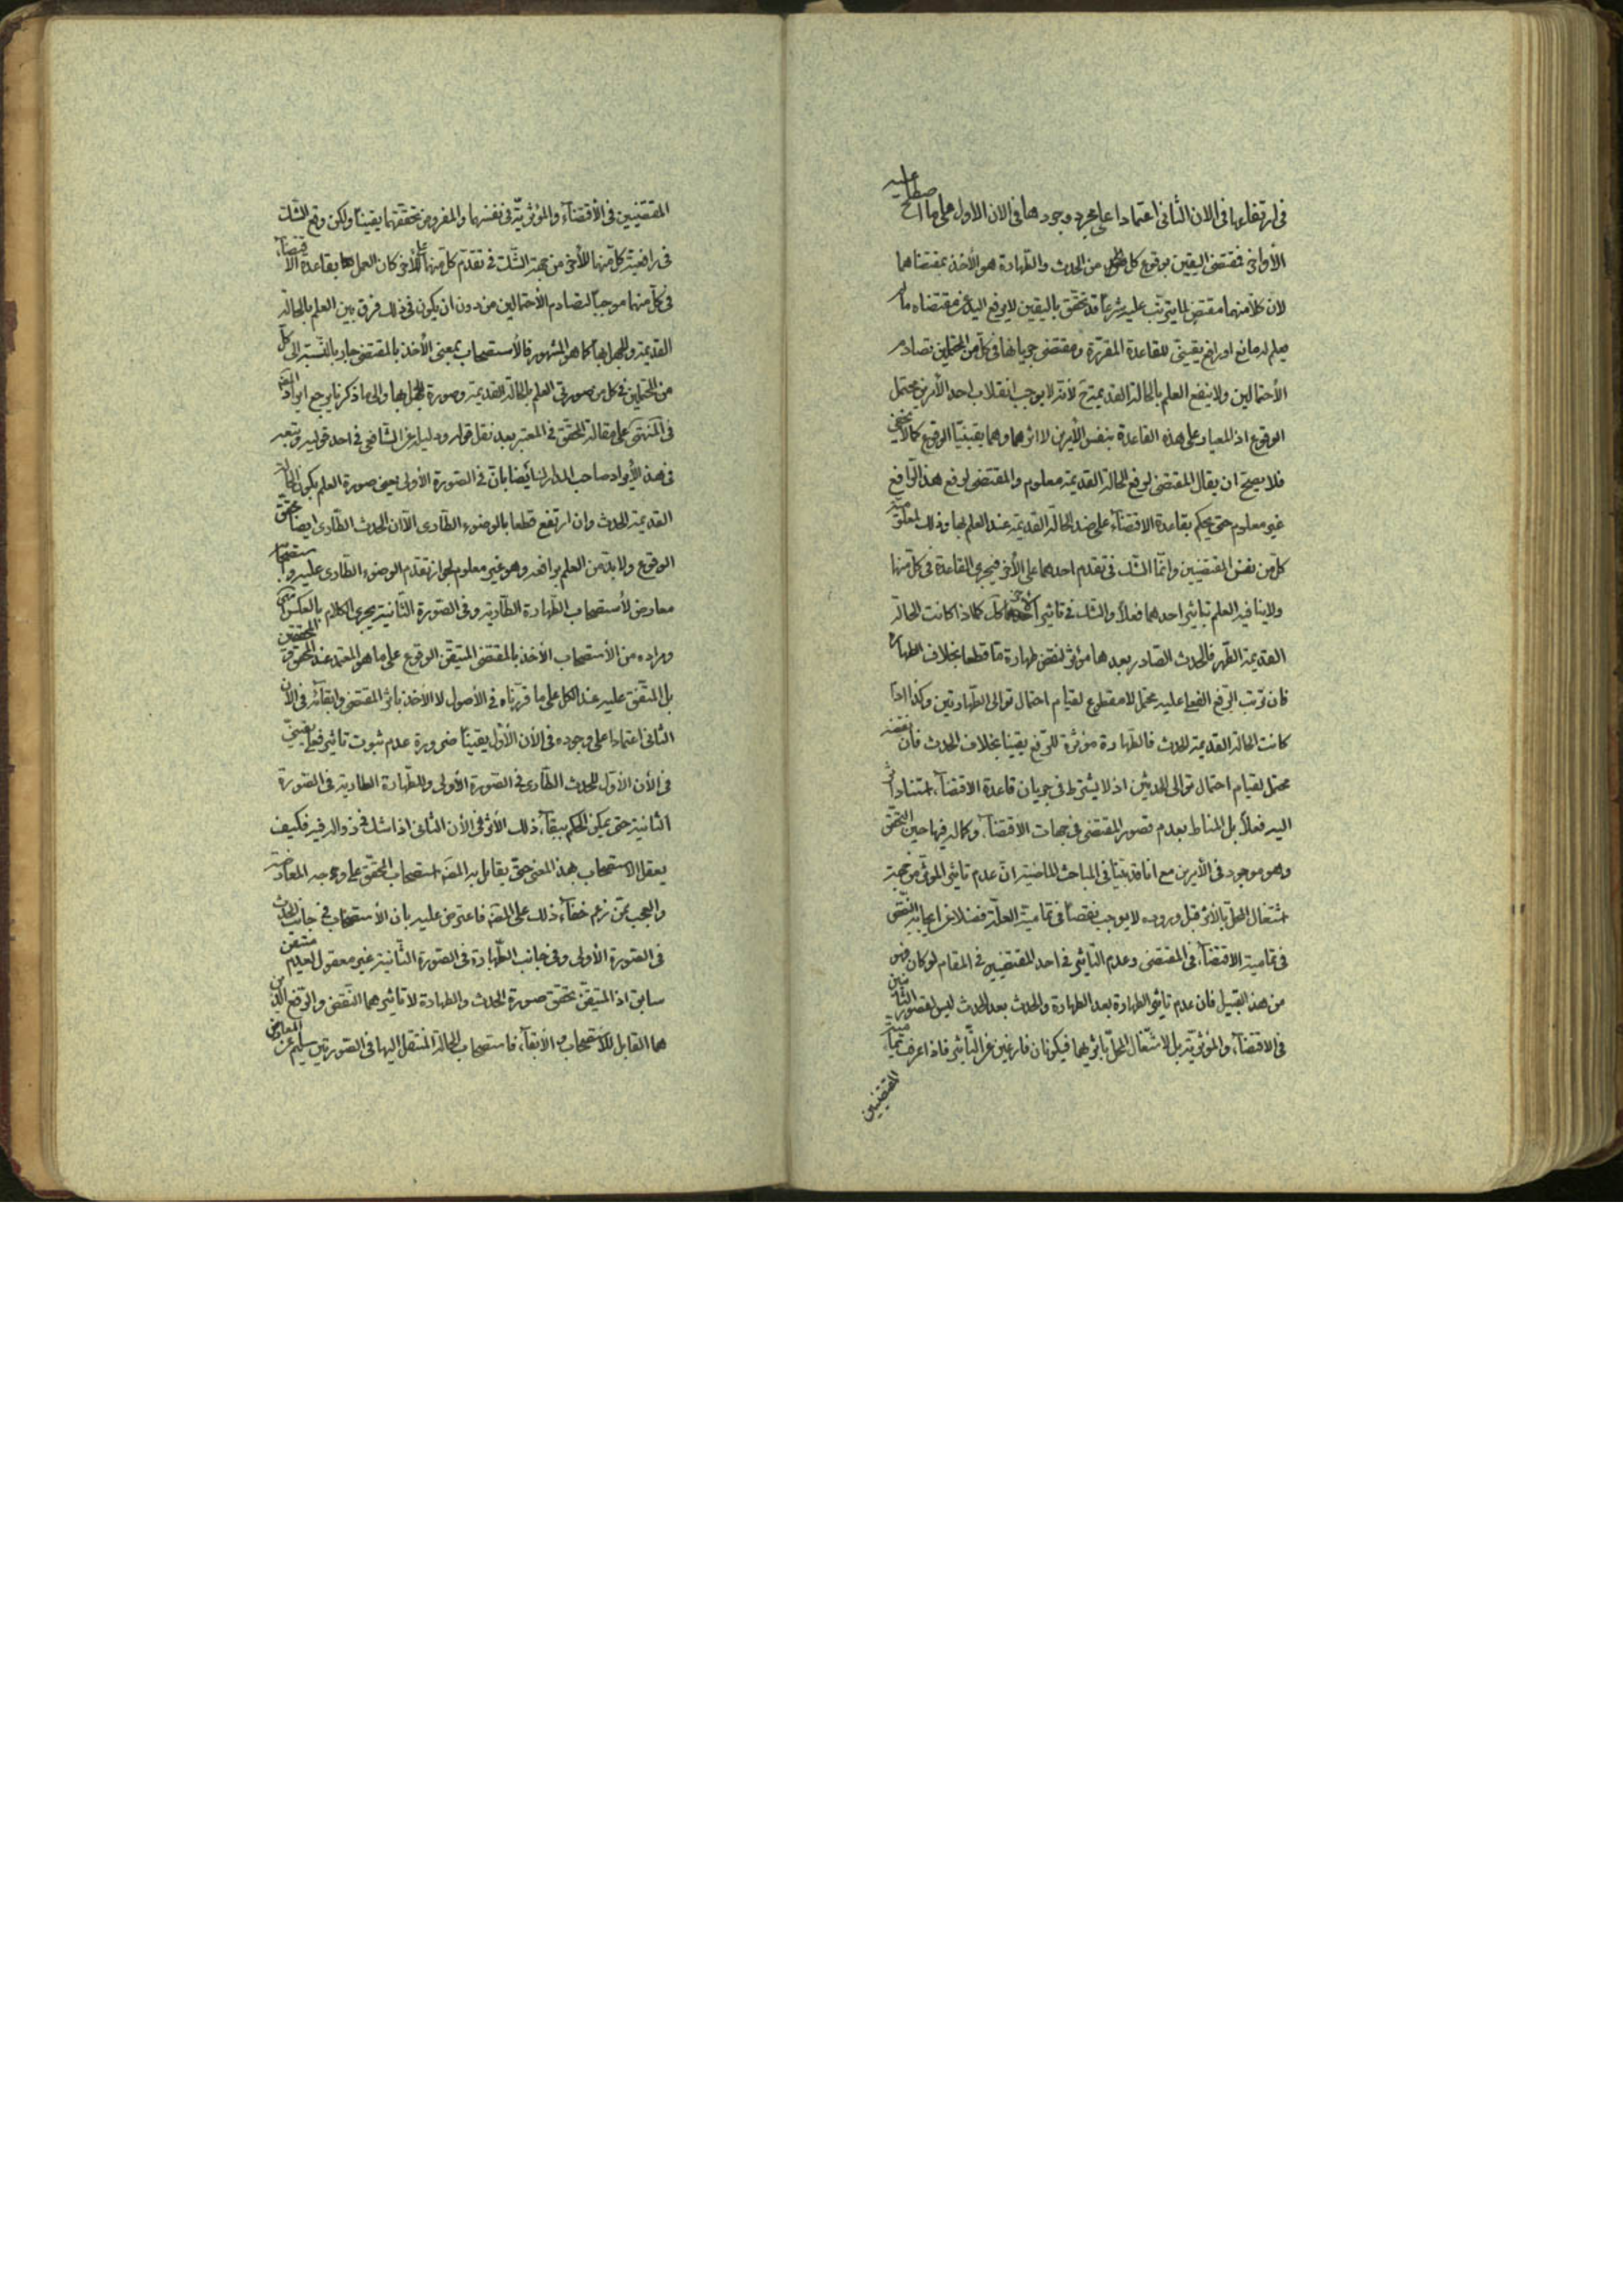 في ارتفاعها في الان الثاني اعتمادا على مجرد وجودها في الان الاول على ما اصطلح عليه
الأواخر فمقتضى اليقين بوقوع كل من الحدث والطهارة هو الأخذ بمقتضاهما
لان كلا منهما مقتض لما يترتب عليه شرعا قد تحقق باليقين لا يرفع اليد عن مقتضاه ما لم
يعلم له مانع او رافع يقيني للقاعدة المقررة ومقتضى جريانها في كل من المحتملين تصادم
الأحتمالين ولا ينفع العلم بالحالة القديمة ح لأنه لا يوجب انقلاب احد الأمرين محتمل
الوقوع اذ المعيار على هذه القاعدة بنفس الأمرين لا اثرهما وهما يقينيا الوقوع كما لا يخفى
فلا يصح ان يقال المقتضى لرفع الحالة القديمة معلوم والمقتضى لرفع هذا الرافع
غير معلوم حتى يحكم بقاعدة الاقتضاء على ضد الحالة القديمة عند العلم بها وذلك لمعلومية
كل من نفس المقتضيين وانما الشك في تقدم احدهما على الأخر فيجرى القاعدة في كل منهما
ولا ينافيه العلم بتاثير احدهما فعلا والشك في تاثير الاخر كك كما اذا كانت الحالة
القديمة الطهر فالحدث الصادر بعدها مؤثر لنقض طهارة ما قطعا بخلاف الطهارة
فان ترتب الرفع الفعلي عليه محتمل لا مقطوع لقيام احتمال توالى الطهارتين وكذا اذا
كانت الحالة القديمة الحدث فالطهارة مؤثرة للرفع يقينا بخلاف الحدث فان نقضه
محتمل لقيام احتمال توالى الحدثين اذ لا يشترط في جريان قاعدة الاقتضاء استناد اثر
اليه فعلا بل المناط بعدم قصور المقتضى في جهات الاقتضاء وكماله فيها حين التحقق
وهو موجود في الأمرين مع انا قد بينا في المباحث الماضية ان عدم تاثير المؤثر من جهة
اشتغال المحل بالأثر قبل وروده لا يوجب نقصا في تمامية العلة فضلا عن ايجابه النقص
في تمامية الاقتضاء في المقتضى وعدم التأثير في احد المقتضيين في المقام لو كان فهو
من هذا القبيل فان عدم تاثير الطهارة بعد الطهارة والحدث بعد الحدث ليس لقصور الثانيين
في الاقتضاء والمؤثرية بل لاشتغال المحل باثريهما فيكونان فارغين عن التأثير فاذا عرفت تمامية
المقتضيين
المقتضيين في الأقتضاء والمؤثرية في نفسهما والمفروض تحققهما يقينا ولكن وقع الشك
في رافعية كل منهما للأخر من جهة الشك في تقدم كل منهما على الأخر كان العمل بقاعدة الاقتضاء
في كل منهما موجبا لتصادم الأحتمالين من دون ان يكون في ذلك فرق بين العلم بالحالة
القديمة والجهل بها كما هو المشهور فالأستصحاب بمعنى الأخذ بالمقتضى جار بالنسبة الى كل
من المحتملين في كل من صورتي العلم بالحالة القديمة وصورة الجهل بها والى ما ذكرنا يرجع ايراد العلامة
في المنتهى على مقالة المحقق في المعتبر بعد نقل قوله ودليله عن الشافعي في احد قوليه وتبعه
في هذا الأيراد صاحب المدارك ايضا بان في الصورة الأولى يعني صورة العلم بكون الحالة
القديمة الحدث وان ارتفع قطعا بالوضوء الطاري الا ان الحدث الطاري ايضا محقق
الوقوع ولا بد من العلم برافعه وهو غير معلوم لجواز تقدم الوضوء الطاري عليه واستصحابه
معارض لأستصحاب الطهارة الطارية وفي الصورة الثانية يجرى الكلام بالعكس انتهى
ومراده من الأستصحاب الأخذ بالمقتضى المتيقن الوقوع على ما هو المعتمد عند المحققين
بل المتفق عليه عند الكل على ما قررناه في الأصول لا الأخذ باثر المقتضى وابقائه في الآن
الثاني اعتمادا على وجوده في الأن الأول يقينا ضرورة عدم ثبوت تاثير فعلي يقيني
في الأن الأول للحدث الطاري في الصورة الأولى وللطهارة الطارية في الصورة
الثانية حتى يمكن الحكم ببقاء ذلك الأثر في الأن الثاني اذا شك في زواله فيه فكيف
يعقل الاستصحاب بهذا المعنى حتى يقابل به استصحاب المحقق على وجه المعارضة
والعجب ممن زعم خفاء ذلك على العلامة فاعترض عليه بان الأستصحاب في جانب الحدث
في الصورة الأولى وفي جانب الطهارة في الصورة الثانية غير معقول لعدم متيقن
سابق اذ المتيقن تحقق صورة الحدث والطهارة لا تاثيرهما النقض والرفع الذين
هما القابل للأستصحاب والأبقاء فاستصحاب الحالة المنتقل اليها في الصورتين سليم عن المعارض